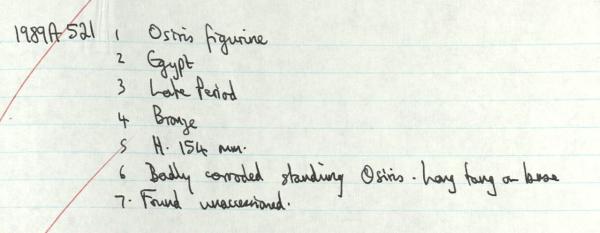 1989A 521 1 Osiris figurine
2 Egypt
3 Late Period
4 Bronze
5 H. 154 mm.
6 Badly corroded standing Osiris. Long tang on base
7. Found unaccessioned.